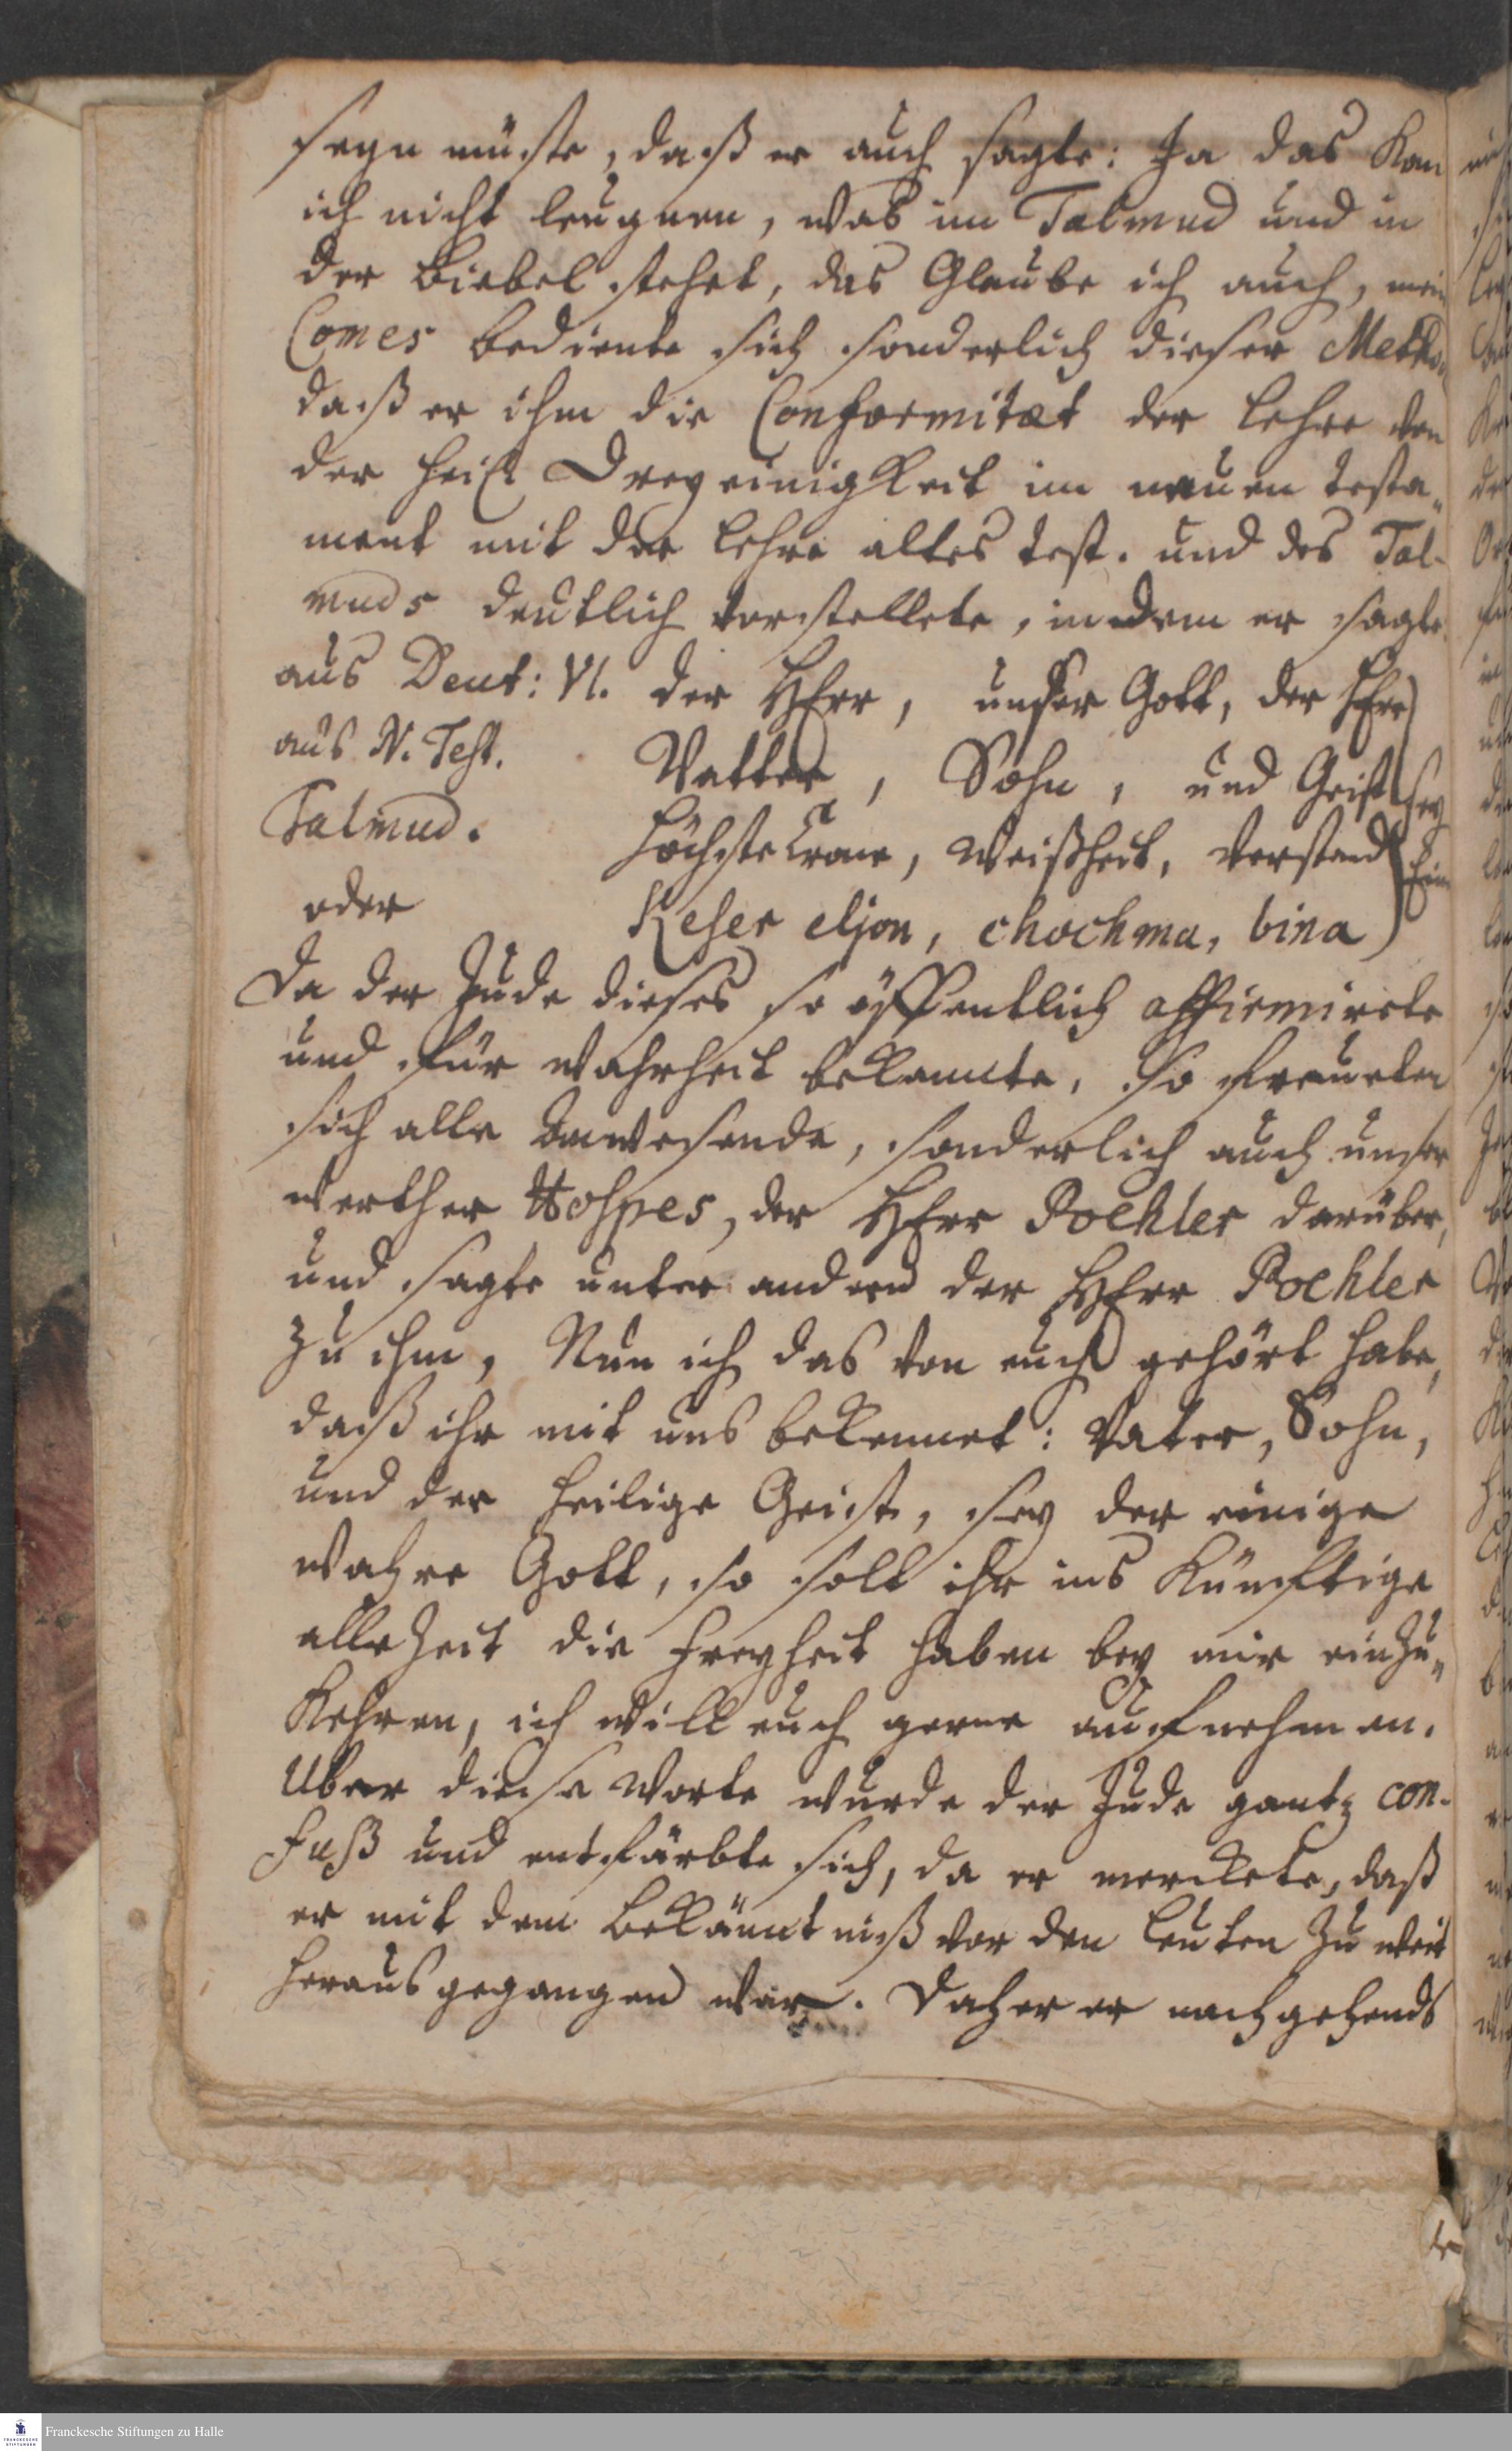 seyn müste, daß er auch sagte: Ja das kan
ich nicht leugnen, was im Talmud und in
der Biebel stehet, das Glaube ich auch, mein
Comes bediente sich sonderlich dieser Metho
daß er ihm die Conformitæt der Lehre von
der heil Dreyeinigkeit im neuen testa„
ment mit der Lehre altes test. und des Tal-
muds deutlich vorstellete, indem er sagte
aus Deut: VI. der HErr, unser Gott, der HErr
aus N. Test. Vatter, Sohn, und Geist sey
Talmud. Höchste Crone, Weißheit, Verstand Ein
oder Keser eljon, chochma, bina
Da der Jude dieses so öffentlich affirmirete
und für Wahrheit bekannte, so freueten
sich alle Anwesende, sonderlich auch unser
werther Hospes, der HErr Poehler darüber,
und sagte unter andern der HErr Poehler
zu ihm, Nun ich das von euch gehört habe,
daß ihr mit uns bekennet: Vater, Sohn,
und der heilige Geist, sey der einige
wahre Gott, so solt ihr ins künfftige
allezeit die Freyheit haben bey mir einzu„
kehren, ich will euch gerne aufnehmen.
Uber diese Worte wurde der Jude gantz con-
fuß und entfärbte sich, da er merckete, daß
er mit dem bekänntniß vor den leuten zu weit
heraus gegangen war. Daher er nachgehends
Franckesche Stiftungen zu Halle